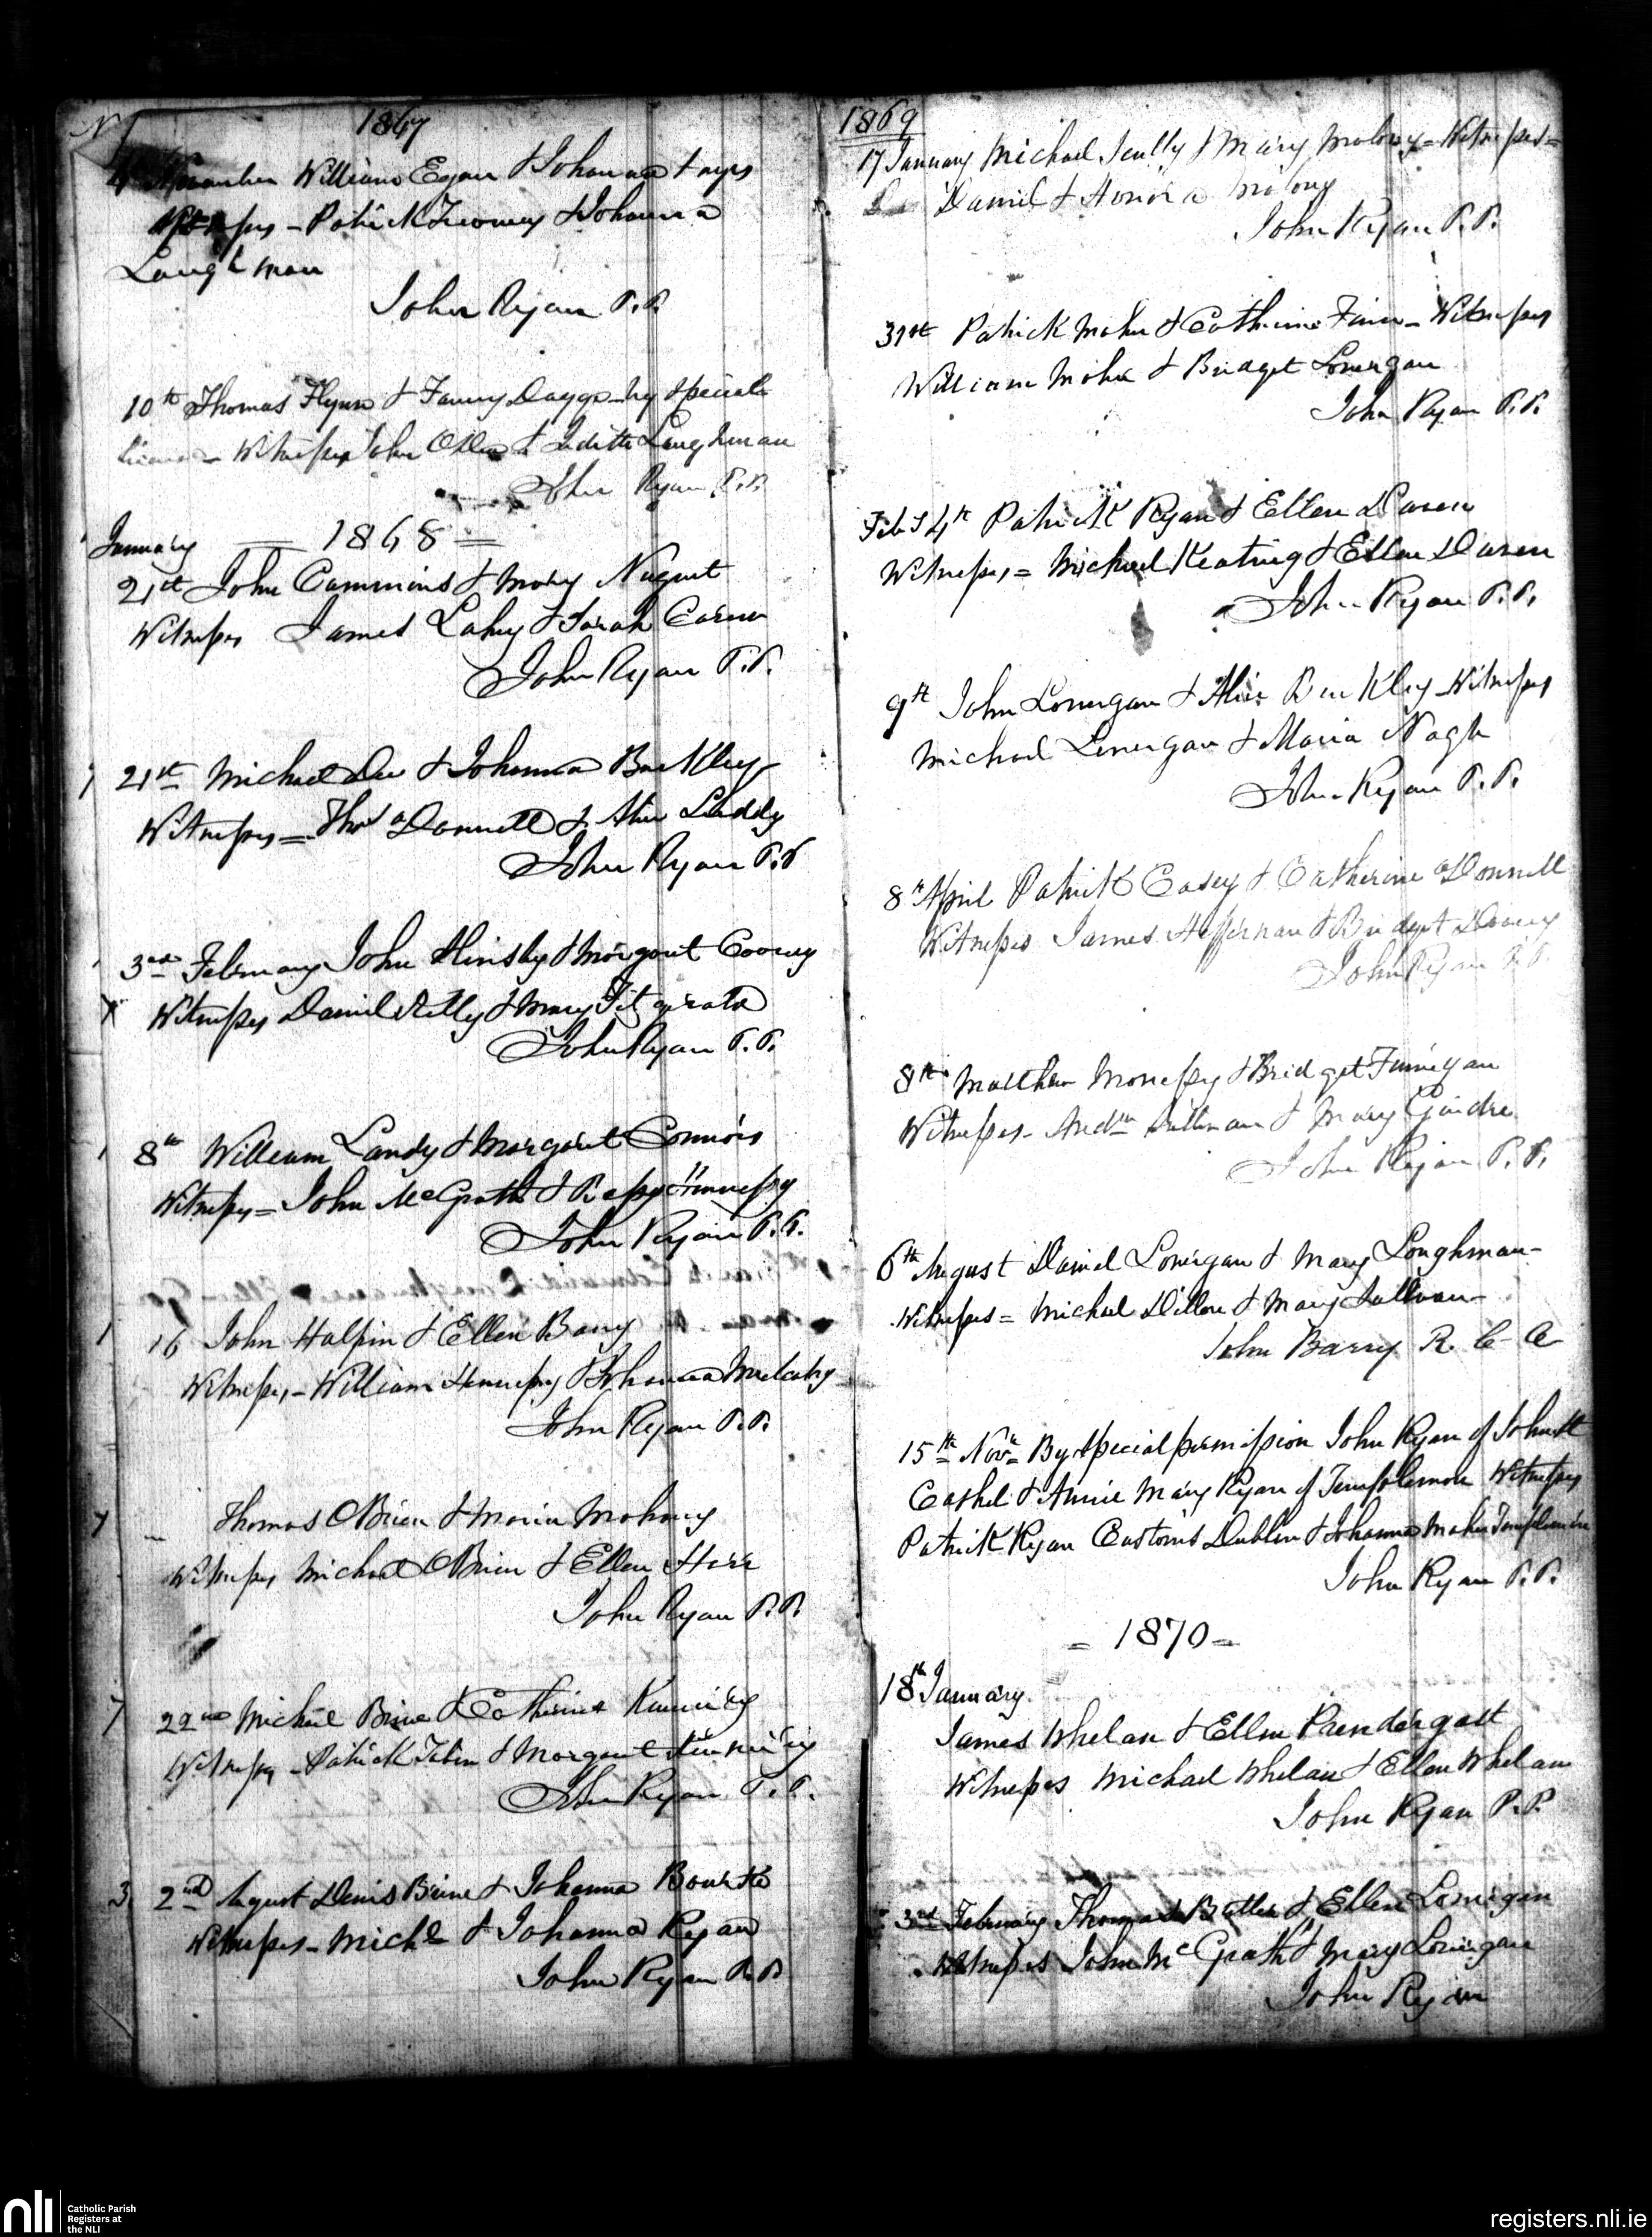 1867
November William Egan & Johanna Hays
Witnesses - Patrick Twomey & Johanna
Laughman
John Ryan P.P.
10th Thomas Flynn & Fanny by special
Witnesses John & Judith Laughman
John Ryan P.P.
January = 1868 =
21st John Cummins & Mary Nugent
Witnesses James Lahy & Sarah
John Ryan P.P.
21st Michael Dee & Johanna Buckley
Witnesses = Thos O Donnell & Alice Luddy
John Ryan P.P
3rd February John & Margaret Cooney
Witnesses Daniel & Mary Fitzgerald
John Ryan P.P.
8th William Landy & Margaret Connors
Witnesses = John McGrath & Bessy Hennessy
John Ryan P.P.
16 John Halpin & Ellen Barry
Witnesses - William Hennessy & Johanna Mulcahy
John Ryan P.P.
Thomas OBrien & Maria Mahony
Witnesses Michael OBrien & Ellen
John Ryan P.P.
22nd Michael & Catherine
Witnesses - Patrick Tobin & Margaret
John Ryan P.P.
3 2nd August Denis & Johanna Bourke
Witnesses - Michl & Johanna Ryan
John Ryan P.P
1869
17 January Michael Scully & Mary Malony = Witnesses =
Daniel & Honora Malony
John Ryan P.P.
31st Patrick Maher & Catherine - Witnesses
William Maher & Bridget Lonergan
John Ryan P.P.
Feb 4th Patrick Ryan & Ellen Daren
Witnesses = Michael Keating & Ellen Daren
John Ryan P.P.
9th John Lonergan & Alice Buckley - Witnesses
Michael Lonergan & Maria Nagle
John Ryan P.P.
8th April Patrick Casey & Catherine ODonnell
Witnesses James Heffernan & Bridget
John Ryan P.P.
8th Matthew & Bridget Finnegan
Witnesses - Andw Sullivan & Mary
John Ryan P.P.
6th August Daniel Lonergan & Mary Loughman -
Witnesses = Michael Dillon & Mary Sullivan -
John Barry R. C. C
15th Novr By Special permission John Ryan of John St
Cashel & Annie Mary Ryan of Templemore Witnesses
Patrick Ryan Customs Dublin & Johanna Maher Templemore
John Ryan P.P.
= 1870 =
18th January
James Whelan & Ellen Prendergast
Witnesses Michael Whelan & Ellen Whelan
John Ryan P.P.
3rd February Thomas Butler & Ellen Lonergan
Witnesses John McGrath & Mary Lonergan
John Ryan
nli
Catholic Parish
Registers at
the NLI
registers.nli.ie